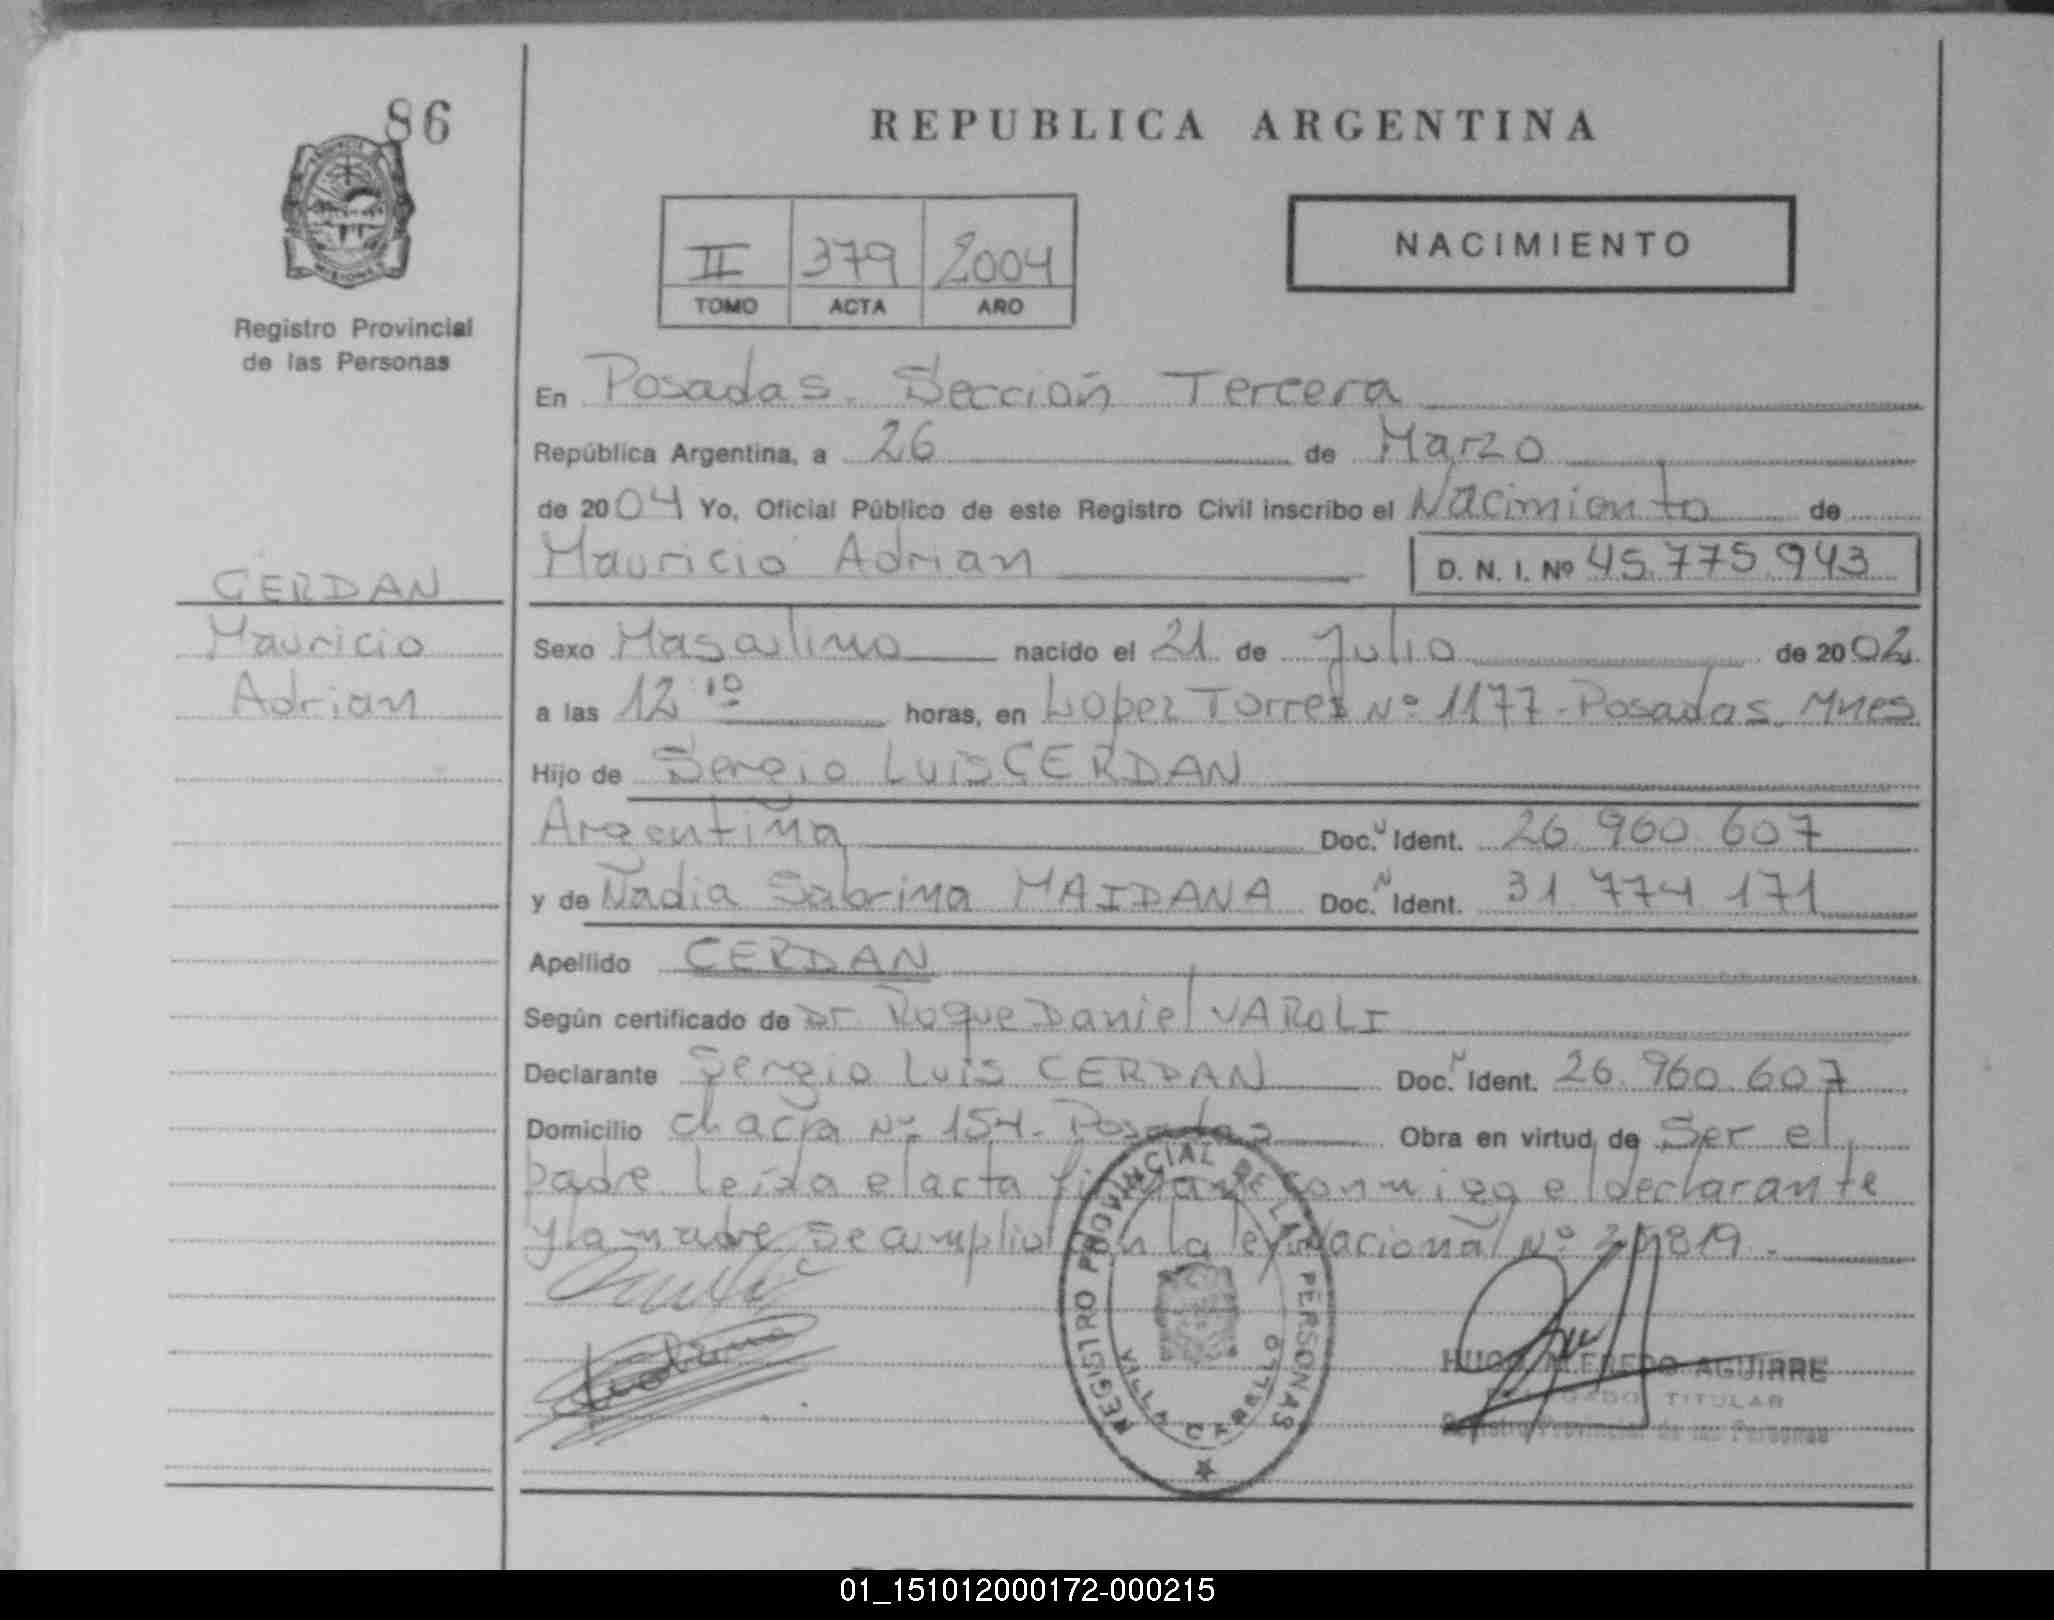 86
REPUBLICA ARGENTINA
II 379 2004
TOMO ACTA AÑO
NACIMIENTO
Registro Provincial
de las Personas
En Posadas. Sección Tercera
República Argentina, a 26 de Marzo
de 2004 Yo, Oficial Público de este Registro Civil inscribo el Nacimiento de
Mauricio Adrian D. N. I. Nº 45.775.943
CERDAN
Mauricio
Adrian
Sexo Masculino nacido el 21 de Julio de 2002
a las 12:10 horas, en Lopez Torres Nº 1177-Posadas. Mnes
Hijo de Sergio Luis CERDAN
Argentina Doc. N Ident. 26.960.607
y de Nadia Sabrina MAIDANA Doc. N Ident. 31.774.171
Apellido CERDAN
Según certificado de Dr. Roque Daniel VAROLI
Declarante Sergio Luis CERDAN Doc. N Ident. 26.960.607
Domicilio chacra Nº 154-Posadas Obra en virtud de Ser el
padre leída el acta firman conmigo el declarante
y la madre se cumplio con la ley Nacional Nº 819.
REGISTRO PROVINCIAL DE LAS PERSONAS
VILLA CABELLO
HUGO ALFREDO AGUIRRE
DELEGADO TITULAR
Registro Provincial de las Personas
01_151012000172-000215